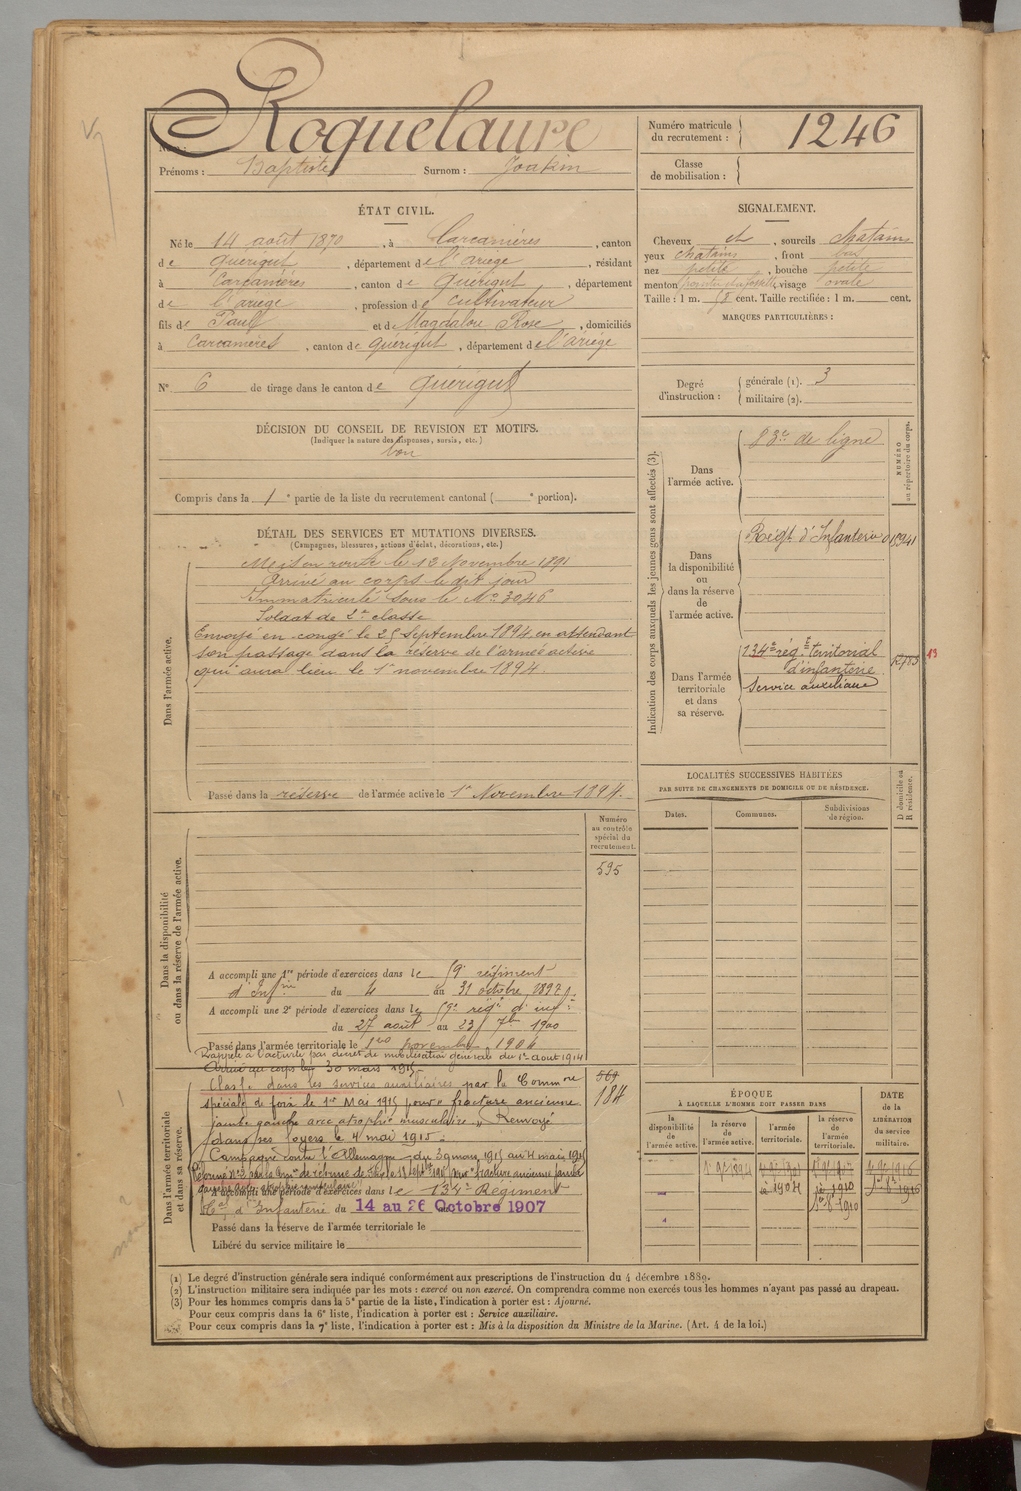 Roquelaure
Nom :
Prénoms : Baptiste Surnom : Joakim
Numéro matricule du recrutement : 1246
Classe de mobilisation :
ÉTAT CIVIL.
Né le 14 août 1870, à Carcanières, canton
de Quérigut, département de l'ariège, résidant
à Carcanières, canton de Quérigut, département
de l'ariège, profession de cultivateur
fils de Paul et de Magdalou Rose, domiciliés
à Carcanières, canton de Quérigut, département de l'ariège
N° 6 de tirage dans le canton de Quérigut
SIGNALEMENT.
Cheveux et, sourcils chatains
yeux chatains, front bas
nez petite, bouche petite
menton pointu à fossette, visage ovale
Taille : 1 m. cent. Taille rectifiée : 1 m. cent.
MARQUES PARTICULIÈRES :
Degré d'instruction : générale (1). 3
militaire (2).
DÉCISION DU CONSEIL DE REVISION ET MOTIFS.
(Indiquer la nature des dispenses, sursis, etc.)
bon
Compris dans la 1e partie de la liste du recrutement cantonal ( e portion).
DÉTAIL DES SERVICES ET MUTATIONS DIVERSES.
(Campagnes, blessures, actions d'éclat, décorations, etc.)
Dans l'armée active.
Mis en route le 12 Novembre 1891
Arrivé au corps le dit jour
Immatriculé sous le No 3046
Soldat de 2e classe
Envoyé en congé le 25 Septembre 1894 en attendant
son passage dans la réserve de l'armée active
qui aura lieu le 1er novembre 1894
Passé dans la réserve de l'armée active le 1er Novembre 1894.
Indication des corps auxquels les jeunes gens sont affectés (3).
NUMÉRO au répertoire du corps.
Dans l'armée active.
83e de ligne
Dans la disponibilité ou dans la réserve de l'armée active.
Régt d'Infanterie
Dans l'armée territoriale et dans sa réserve.
134e rég.t territorial
d'infanterie
Service auxiliaire
13
LOCALITÉS SUCCESSIVES HABITÉES
PAR SUITE DE CHANGEMENTS DE DOMICILE OU DE RÉSIDENCE.
Dates. Communes. Subdivisions de région. D domicile ou R résidence.
Dans la disponibilité ou dans la réserve de l'armée active.
Numéro au contrôle spécial du recrutement.
595
A accompli une 1re période d'exercices dans le 59e régiment
d'Infrie du 4 au 31 octobre 1897.
A accompli une 2e période d'exercices dans le 59e régt d'inf.
du 27 août au 23 7bre 1900
Passé dans l'armée territoriale le 1er novembre 1904
Rappelé à l'activité par décret de mobilisation générale du 1er aout 1914
Arrivé au corps le 30 mars 1915
Dans l'armée territoriale et dans sa réserve.
569
184
Classé dans les services auxiliaires par la Common
spéciale de foix le 1er Mai 1915 pour "fracture ancienne
jambe gauche avec atrophie musculaire". Renvoyé
dans ses foyers le 4 mai 1915.
Campagne contre l'Allemagne du 30 mars 1915 au 4 mai 1915
A accompli une période d'exercices dans le 134e Régiment
d'Infanterie du 14 au 26 Octobre 1907
Passé dans la réserve de l'armée territoriale le
Libéré du service militaire le
ÉPOQUE
À LAQUELLE L'HOMME DOIT PASSER DANS
la disponibilité de l'armée active. la réserve de l'armée active. l'armée territoriale. la réserve de l'armée territoriale.
DATE de la LIBÉRATION du service militaire.
(1) Le degré d'instruction générale sera indiqué conformément aux prescriptions de l'instruction du 4 décembre 1889.
(2) L'instruction militaire sera indiquée par les mots : exercé ou non exercé. On comprendra comme non exercés tous les hommes n'ayant pas passé au drapeau.
(3) Pour les hommes compris dans la 5e partie de la liste, l'indication à porter est : Ajourné.
Pour ceux compris dans la 6e liste, l'indication à porter est : Service auxiliaire.
Pour ceux compris dans la 7e liste, l'indication à porter est : Mis à la disposition du Ministre de la Marine. (Art. 4 de la loi.)